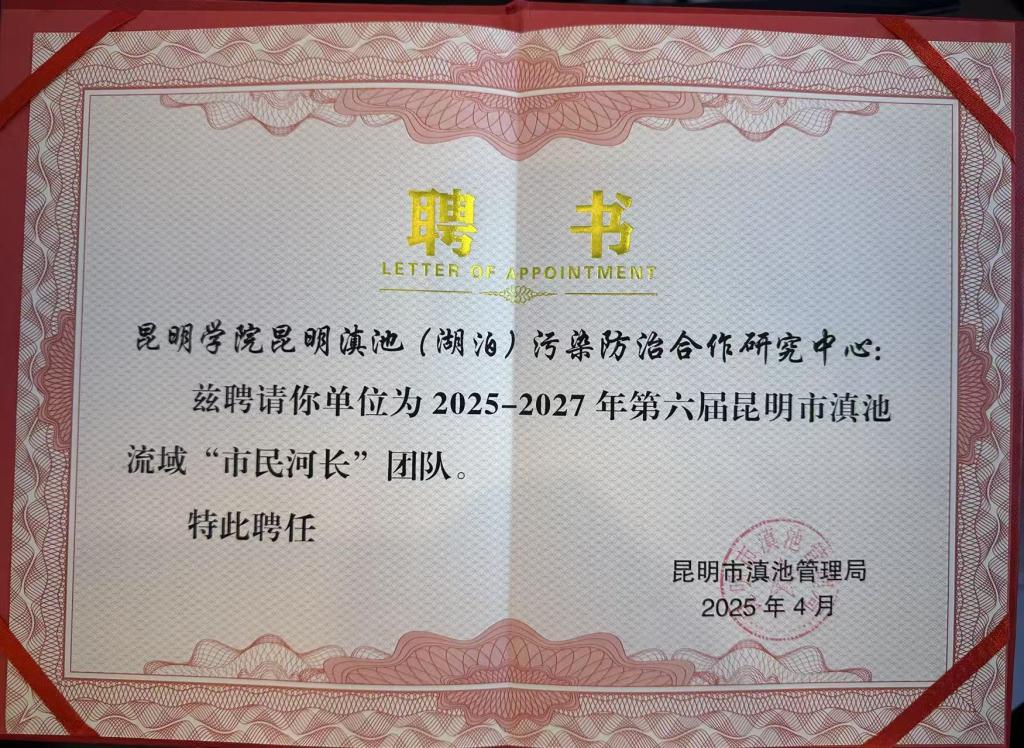 聘 书
LETTER OF APPOINTMENT
昆明学院昆明滇池（湖泊）污染防治合作研究中心：
兹聘请你单位为 2025-2027 年第六届昆明市滇池
流域“市民河长”团队。
特此聘任
昆明市滇池管理局
2025 年 4 月